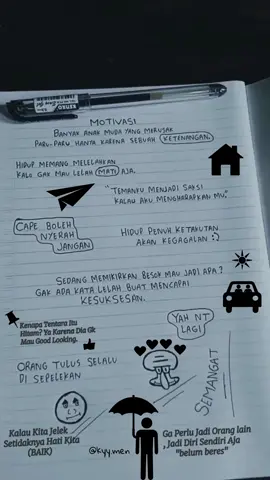 MOTIVASI
BANYAK ANAK MUDA YANG MERUSAK
PARU-PARU HANYA KARENA SEBUAH KETENANGAN.
HIDUP MEMANG MELELAHKAN
KALO GAK MAU LELAH MATI AJA.
"TEMANKU MENJADI SAKSI
KALAU AKU MENGHARAPKAN MU."
CAPE BOLEH
NYERAH
JANGAN
HIDUP PENUH KETAKUTAN
AKAN KEGAGALAN :)
SEDANG MEMIKIRKAN BESOK MAU JADI APA?
GAK ADA KATA LELAH BUAT MENCAPAI
KESUKSESAN.
Kenapa Tentara Itu
Hitam? Ya Karena Dia Gk
Mau Good Looking.
YAH NT
LAGI
ORANG TULUS SELALU
DI SEPELEKAN
SEMANGAT
Kalau Kita Jelek
Setidaknya Hati Kita
(BAIK)
@kyy.men
Ga Perlu Jadi Orang lain
,Jadi Diri Sendiri Aja
"belum beres"